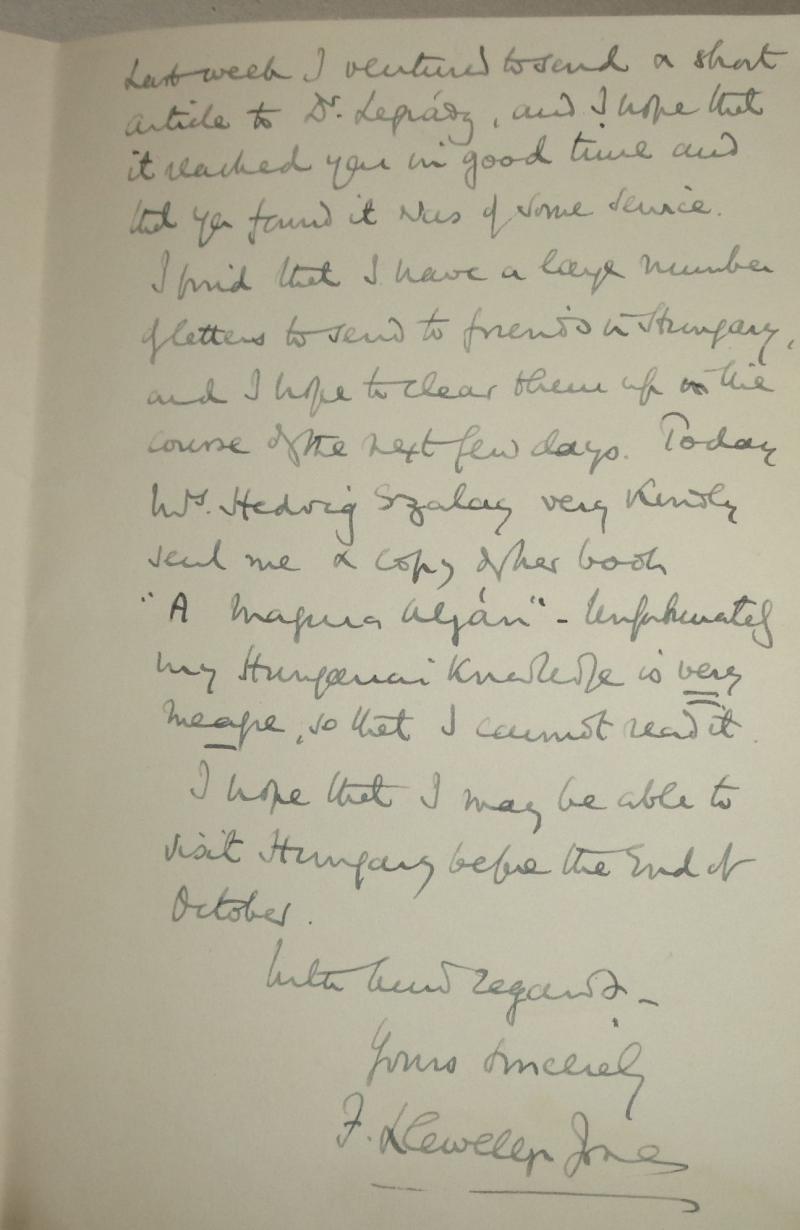 Last week I ventured to send a short
article to Dr. Legrády, and I hope that
it reached you in good time and
that you found it was of some service.
I find that I have a large number
of letters to send to friends in Hungary,
and I hope to clear them up in the
course of the next few days. Today
Mrs. Hedvig Szalay very kindly
sent me a copy of her book
"A Magura Alján" - Unfortunately
my Hungarian knowledge is very
meagre, so that I cannot read it.
I hope that I may be able to
visit Hungary before the end of
October.
With kind regards -
Yours sincerely
F. Llewellyn Jones